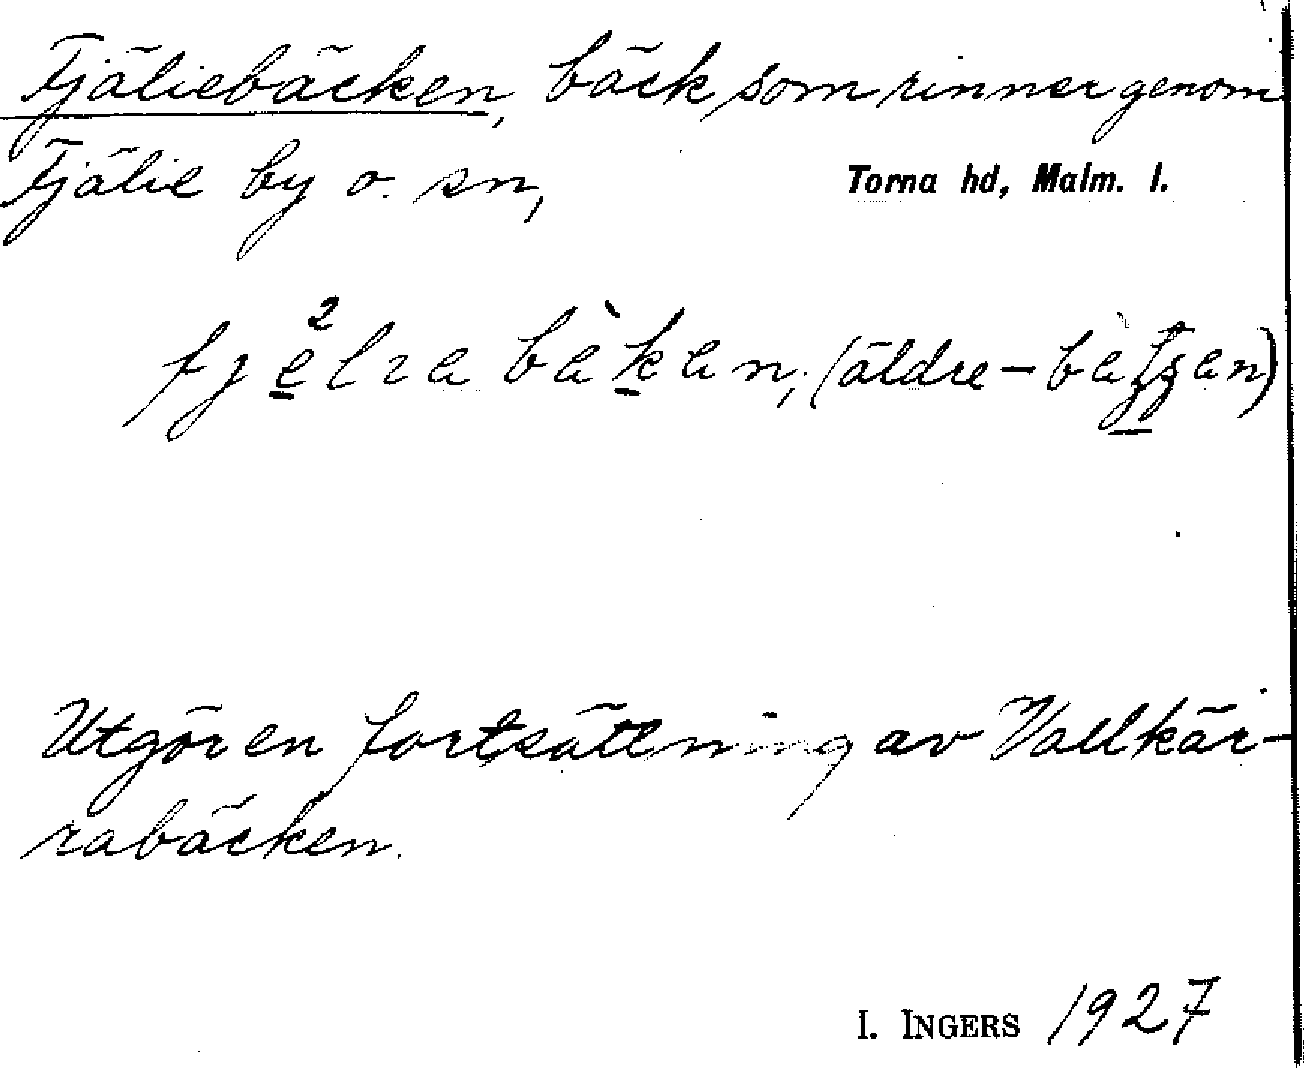 Fjäliebäcken, bäck som rinner genom
Fjälie by o. sn, Torna hd, Malm. l.
(äldre –
Utgör en fortsättning av Vallkär-
rabäcken.
I. INGERS 1927